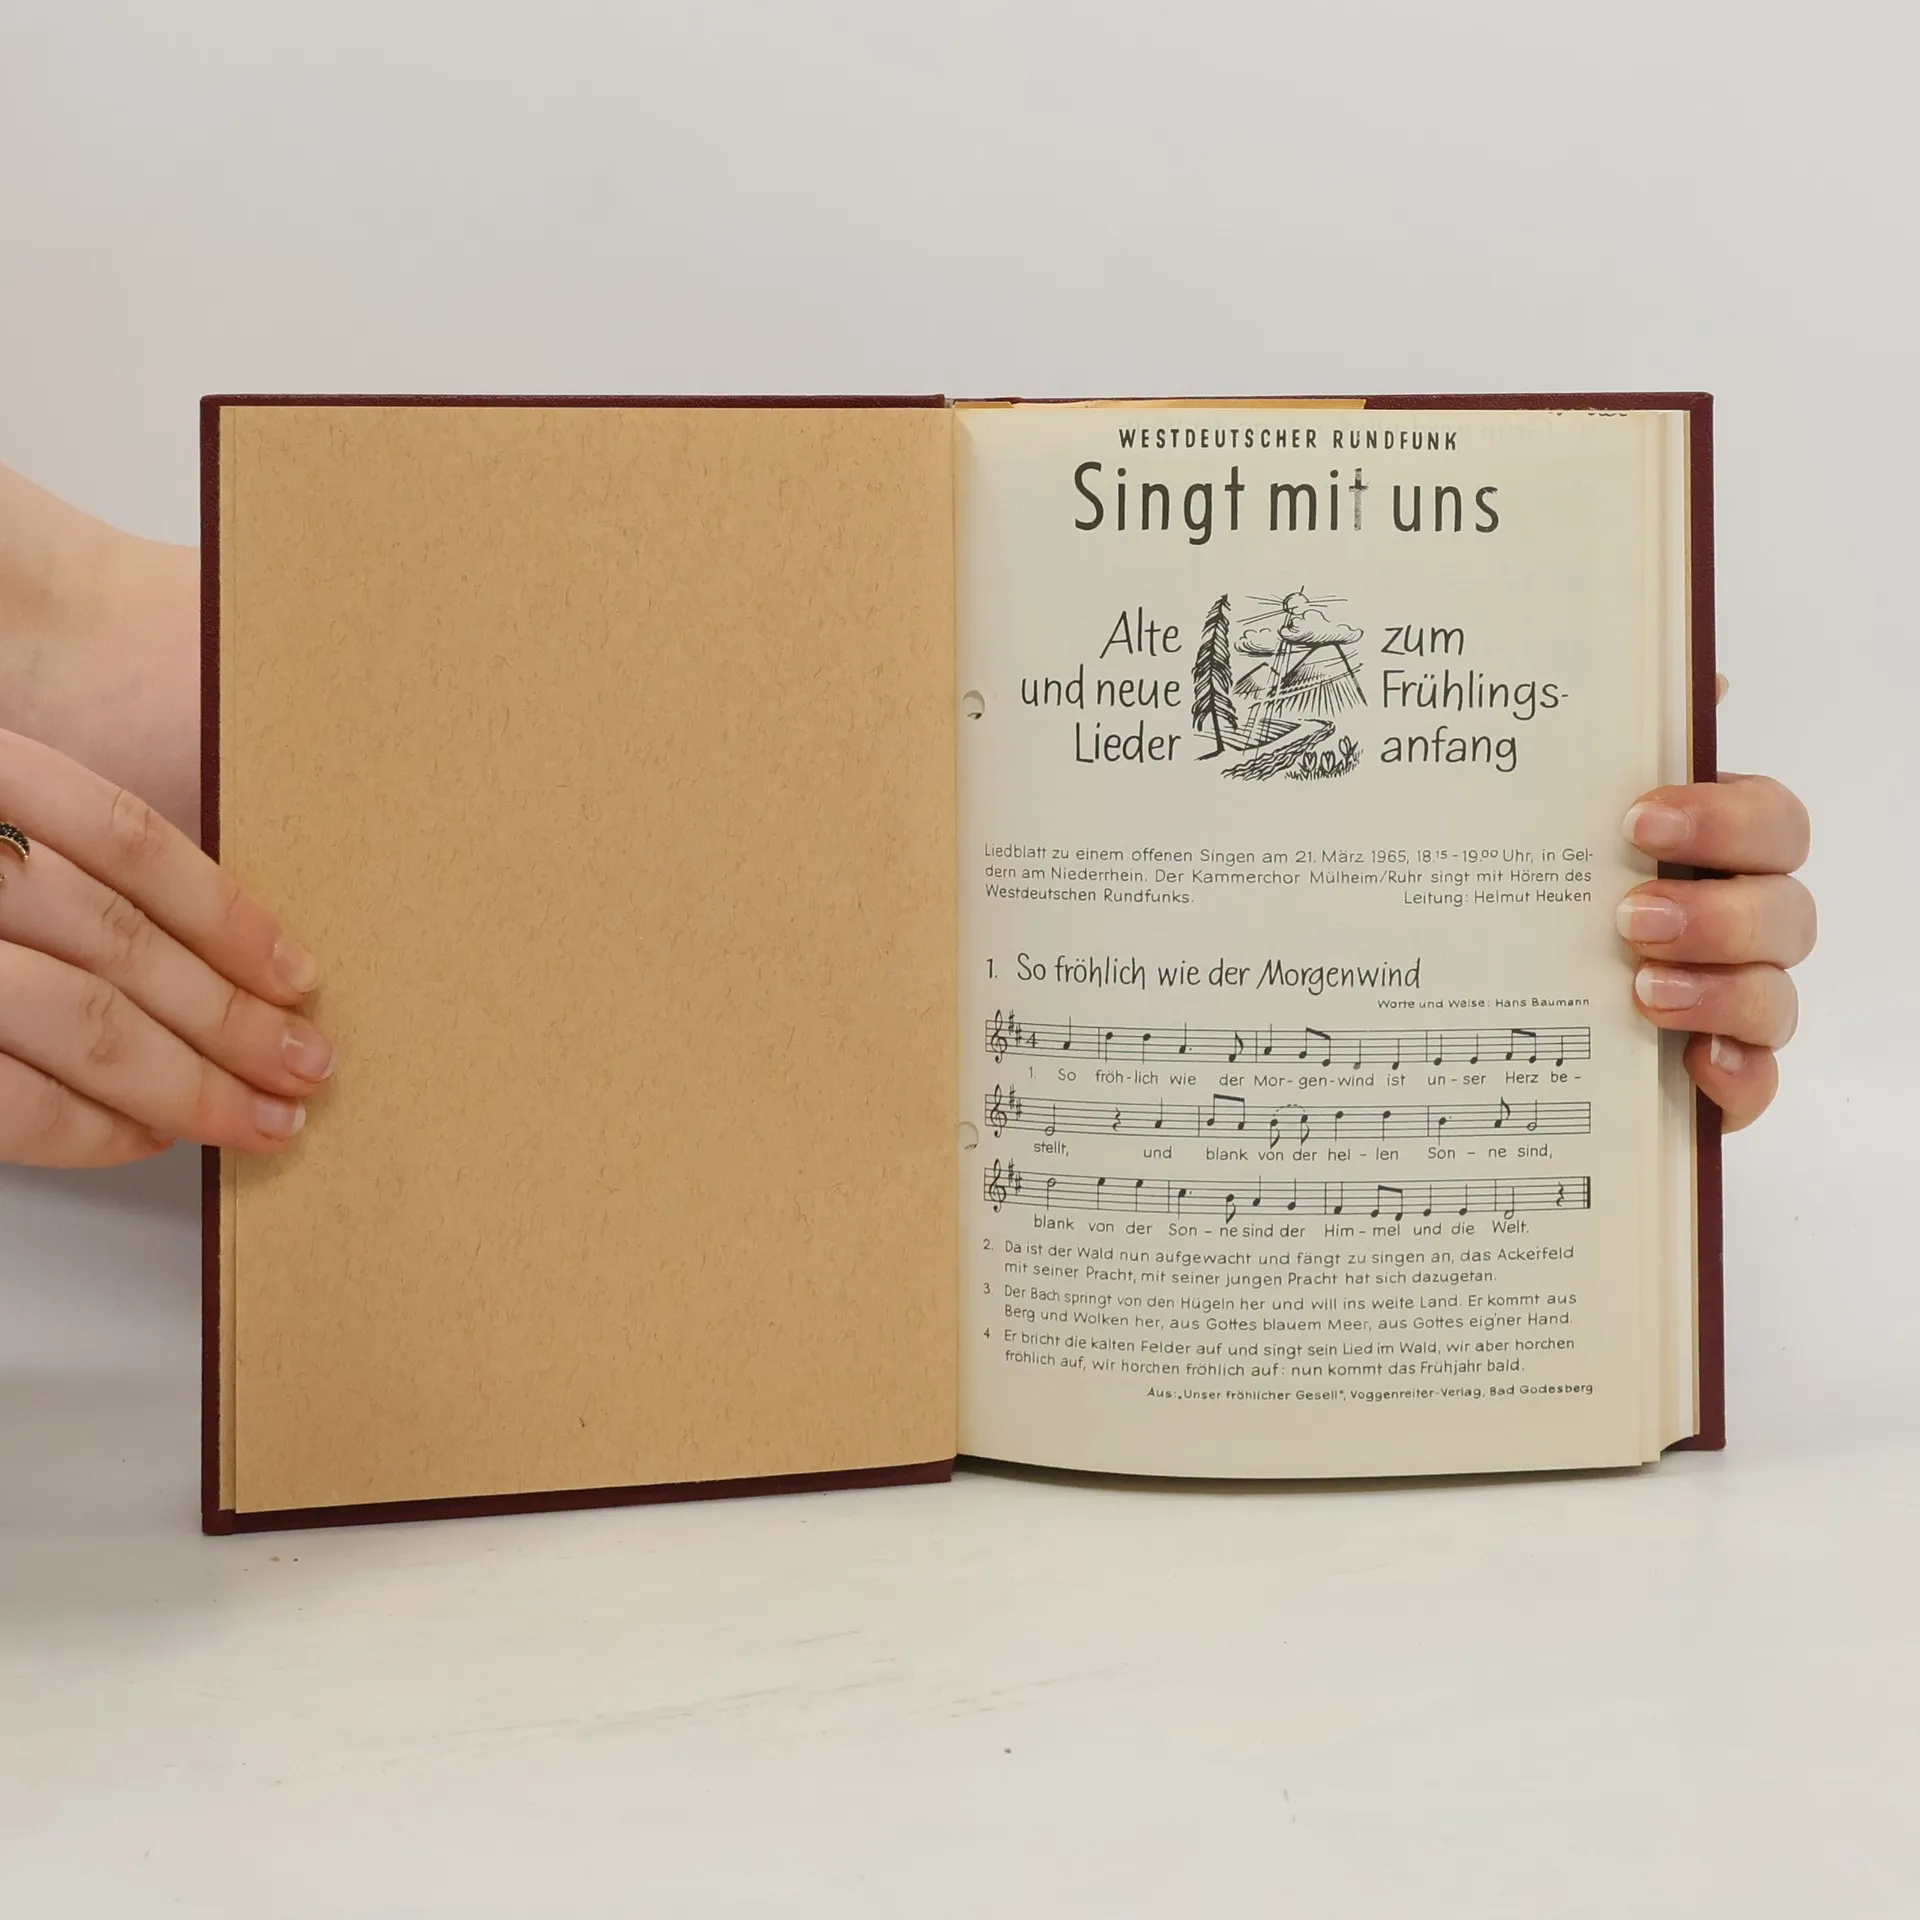 WESTDEUTSCHER RUNDFUNK
Singt mit uns
Alte zum
und neue Frühlings-
Lieder anfang
Liedblatt zu einem offenen Singen am 21. März 1965, 18.15-19.00 Uhr, in Gel-
dern am Niederrhein. Der Kammerchor Mülheim/Ruhr singt mit Hörern des
Westdeutschen Rundfunks. Leitung: Helmut Heuken
1. So fröhlich wie der Morgenwind
Worte und Weise: Hans Baumann
4
1. So fröh-lich wie der Mor-gen-wind ist un-ser Herz be-
stellt, und blank von der hel-len Son-ne sind,
blank von der Son-ne sind der Him-mel und die Welt.
2. Da ist der Wald nun aufgewacht und fängt zu singen an, das Ackerfeld
mit seiner Pracht, mit seiner jungen Pracht hat sich dazugetan.
3. Der Bach springt von den Hügeln her und will ins weite Land. Er kommt aus
Berg und Wolken her, aus Gottes blauem Meer, aus Gottes eig'ner Hand.
4. Er bricht die kalten Felder auf und singt sein Lied im Wald, wir aber horchen
fröhlich auf, wir horchen fröhlich auf: nun kommt das Frühjahr bald.
Aus: „Unser fröhlicher Gesell", Voggenreiter-Verlag, Bad Godesberg